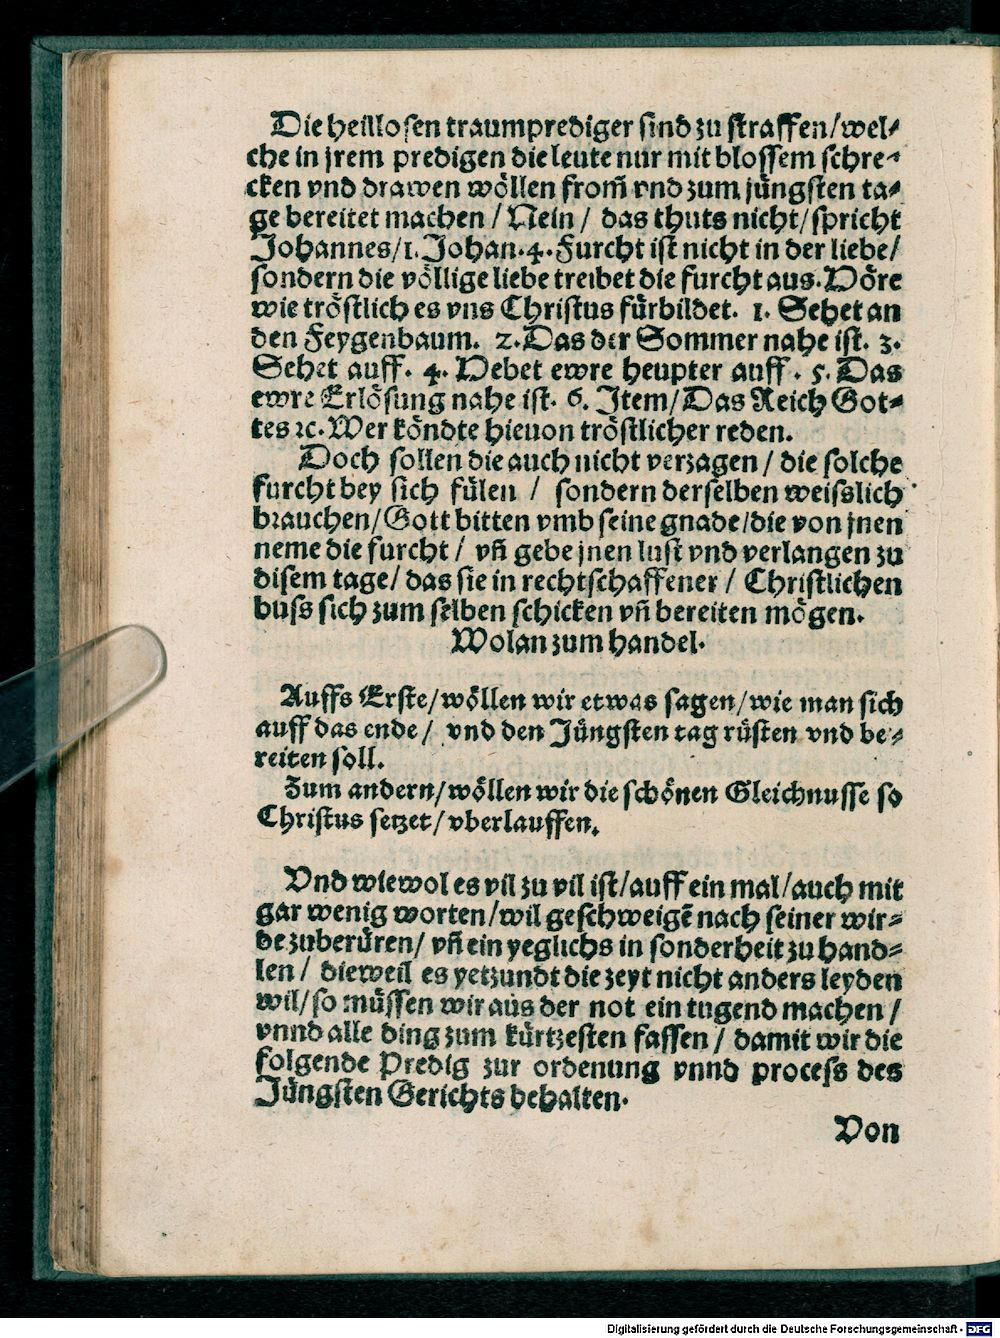 Die heillosen traumprediger sind zu straffen/wel⸗
che in jrem predigen die leute nur mit blossem schre⸗
cken vnd drawen wöllen from̃ vnd zum jüngsten ta⸗
ge bereitet machen / Nein / das thuts nicht/spricht
Johannes/1. Johan.4. Furcht ist nicht in der liebe/
sondern die völlige liebe treibet die furcht aus. Höre
wie tröstlich es vns Christus fürbildet. 1. Sehet an
den Feygenbaum. 2. Das der Sommer nahe ist. 3.
Sehet auff. 4. Hebet ewre heupter auff. 5. Das
ewre Erlösung nahe ist. 6. Item/Das Reich Got⸗
tes ꝛc. Wer köndte hieuon tröstlicher reden.
Doch sollen die auch nicht verzagen / die solche
furcht bey sich fülen / sondern derselben weisslich
brauchen/Gott bitten vmb seine gnade/die von jnen
neme die furcht / vñ gebe jnen lust vnd verlangen zu
disem tage/ das sie in rechtschaffener / Christlichen
buss sich zum selben schicken vñ bereiten mögen.
Wolan zum handel.
Auffs Erste/wöllen wir etwas sagen/wie man sich
auff das ende / vnd den Jüngsten tag rüsten vnd be⸗
reiten soll.
Zum andern/wöllen wir die schönen Gleichnusse so
Christus setzet/vberlauffen.
Vnd wiewol es vil zu vil ist/auff ein mal/auch mit
gar wenig worten/wil geschweigẽ nach seiner wir⸗
de zuberüren/ vñ ein yeglichs in sonderheit zu hand⸗
len / dieweil es yetzundt die zeyt nicht anders leyden
wil/so müssen wir aus der not ein tugend machen /
vnnd alle ding zum kürtzesten fassen / damit wir die
folgende Predig zur ordenung vnnd process des
Jüngsten Gerichts behalten.
Von
Digitalisierung gefördert durch die Deutsche Forschungsgemeinschaft - DFG